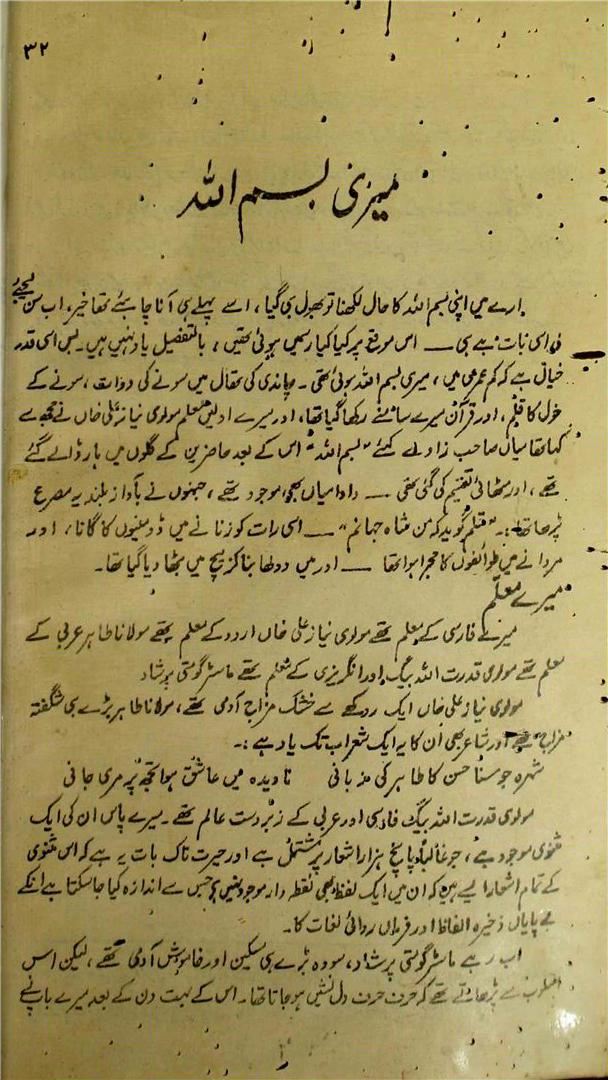 ۳۲
میری بسم اللہ
ارے میں اپنی بسم اللہ کا حال لکھنا تو بھول ہی گیا، اسے پہلے ہی آنا چاہئے تھا خیر، اب سن لیجئے
اس موقع پر کیا کیا رسمیں ہوئی تھیں، بالتفصیل یاد نہیں ہیں۔ بس اسی قدر
خیال ہے کہ کم عمری میں، میری بسم اللہ ہوئی تھی۔ چاندی کی تھال میں سونے کی دوات، سونے کے
خول کا قلم، اور قرآن میرے سامنے رکھا گیا تھا، اور میرے اولین معلم مولوی نیاز علی خاں نے مجھ سے
کہا تھا میاں صاحب زادے کہئے "بسم اللہ" اس کے بعد حاضرین کے گلوں میں ہار ڈالے گئے
تھے، اور مٹھائی تقسیم کی گئی تھی ۔۔ دادا میاں بھی موجود تھے، جنہوں نے بآواز بلند یہ مصرع
پڑھا تھا:۔ "قلم گوید کہ من شاہ جہانم" ۔۔ اسی رات کو زنانے میں ڈومنیوں کا گانا، اور
مردانے میں طوائفوں کا مجرا ہوا تھا ۔۔ اور میں دولھا بنا کر بیچ میں بٹھا دیا گیا تھا۔
میرے معلم
میرے فارسی کے معلم تھے مولوی نیاز علی خاں اردو کے معلم تھے مولانا طاہر عربی کے
معلم تھے مولوی قدرت اللہ بیگ اور انگریزی کے معلم تھے ماسٹر گومتی پرشاد
مولوی نیاز علی خاں ایک روکھے سے خشک مزاج آدمی تھے، مولانا طاہر بڑے ہی شگفتہ
مزاج تھے اور شاعر بھی اُن کا یہ ایک شعر اب تک یاد ہے:۔
شہرہ جو سنا حسن کا طاہر کی زبانی نادیدہ میں عاشق ہوا تجھ پر مری جانی
مولوی قدرت اللہ بیگ فارسی اور عربی کے زبردست عالم تھے۔ میرے پاس ان کی ایک
مثنوی موجود ہے، جو غالباً پانچ ہزار اشعار پر مشتمل ہے اور حیرت ناک بات یہ ہے کہ اس مثنوی
کے تمام اشعار ایسے ہیں کہ ان میں ایک لفظ بھی نقطہ دار موجود نہیں جس سے اندازہ کیا جا سکتا ہے انکے
بے پایاں ذخیرہ الفاظ اور فرماں روائی لغات کا۔
اب رہے ماسٹر گومتی پرشاد، سو وہ بڑے ہی مسکین اور خاموش آدمی تھے، لیکن اس
اسلوب سے پڑھاتے تھے کہ حرف حرف دل نشیں ہو جاتا تھا۔ اس کے بہت دن کے بعد میرے باپ نے